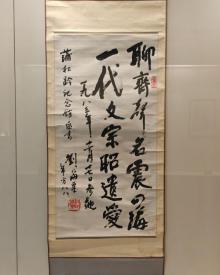 聊齋聲名震四海
一代文宗昭遺愛
一九八三年十一月七日參觀
蒲松齡紀念館留書
劉海粟
年方八八